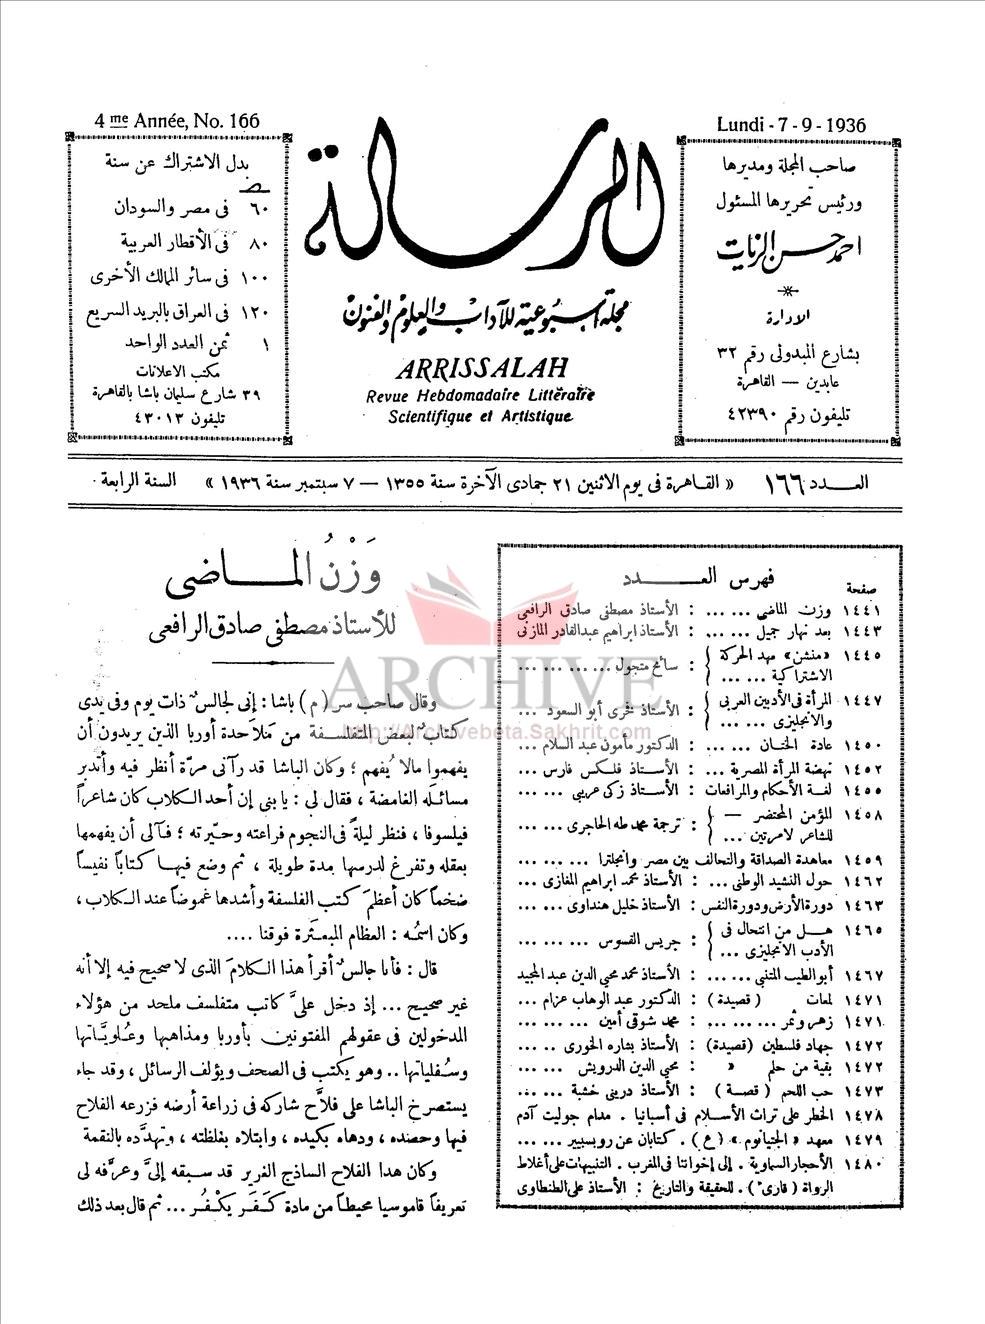 4 me Année, No. 166
Lundi - 7 - 9 - 1936
صاحب المجلة ومديرها
ورئيس تحريرها المسئول
احمد حسن الزيات
الادارة
بشارع المبدولى رقم ٣٢
عابدين — القاهرة
تليفون رقم ٤٢٣٩٠
الرسالة
مجلة أسبوعية للآداب والعلوم والفنون
ARRISSALAH
Revue Hebdomadaire Littéraire
Scientifique et Artistique
بدل الاشتراك عن سنة
٦٠ فى مصر والسودان
٨٠ فى الأقطار العربية
١٠٠ فى سائر الممالك الأخرى
١٢٠ فى العراق بالبريد السريع
١ ثمن العدد الواحد
مكتب الاعلانات
٣٩ شارع سليمان باشا بالقاهرة
تليفون ٤٣٠١٣
العـــدد ١٦٦ « القاهرة فى يوم الاثنين ٢١ جمادى الآخرة سنة ١٣٥٥ — ٧ سبتمبر سنة ١٩٣٦ » السنة الرابعة
فهرس العـــدد
صفحة
١٤٤١ وزن الماضى ... ... : الأستاذ مصطفى صادق الرافعى
١٤٤٣ بعد نهار جميل ... ... : الأستاذ ابراهيم عبد القادر المازنى
١٤٤٥ «منشن» مهد الحركة
الاشتراكية ... ... : سائح متجول ... ... ...
١٤٤٧ المرأة فى الأدبين العربى
والانجليزى ... ... : الأستاذ فخرى أبو السعود ...
١٤٥٠ عادة الختان ... ... : الدكتور مأمون عبد السلام ...
١٤٥٢ نهضة المرأة المصرية ... : الأســتاذ فلكس فارس ...
١٤٥٥ لغـة الأحكام والمرافعات : الأســتاذ زكى عريبى ... ...
١٤٥٨ المؤمن المحتضر —
للشاعر لامرتين ... : ترجمة محمد طه الحاجرى ... ...
١٤٥٩ معاهدة الصداقة والتحالف بين مصر وانجلترا ... ... ...
١٤٦٢ حول النشيد الوطنى ... : الأستاذ محمد ابراهيم المغازى ...
١٤٦٣ دورة الأرض ودورة النفس : الأستاذ خليل هنداوى ... ...
١٤٦٥ هــل من انتحال فى
الأدب الانجليزى ... : جريس القسوس ... ... ...
١٤٦٧ أبو الطيب المتنبى ... ... : الأستاذ محمد محيى الدين عبد المجيد
١٤٧١ لمعات ( قصيدة ) : الدكتور عبد الوهاب عزام ...
١٤٧١ زهر وثمر ... ... ... : محمد شوقى أمين ... ... ...
١٤٧٢ جهاد فلسطين (قصيدة) : الأستاذ بشاره الخورى .. ...
١٤٧٢ بقية من حلم « : محيى الدين الدرويش ... ...
١٤٧٣ حب اللحم ( قصة ) : الأستاذ درينى خشبة ... ...
١٤٧٨ الخطر على تراث الأسـلام فى أسبانيا . مدام جوليت آدم
١٤٧٩ معهد « الجنيانوم » ( ع ) . كتابان عن روبسبيير ... ...
١٤٨٠ الأحجار السماوية . إلى إخواننا فى المغرب . التنبيهات على أغلاط
الرواة ( قارئ ) . للحقيقة والتاريخ : الأستاذ على الطنطاوى
وَزْنُ المــاضى
للأستاذ مصطفى صادق الرافعى
وقال صاحب سر ( م ) باشا : إنى لجالسٌ ذات يوم وفى يدى
كتابٌ لبعض المتفلسفة من مَلاَحدة أوربا الذين يريدون أن
يفهموا مالا يُفهم ؛ وكان الباشا قد رآنى مرّة أنظر فيه وأتدبر
مسائلَه الغامضة ، فقال لى : يا بنى إن أحد الكلاب كان شاعراً
فيلسوفا ، فنظر ليلةً فى النجوم فراعته وحيّرته ؛ فـآلى أن يفهمها
بعقله وتفرغ لدرسها مدة طويلة ، ثم وضع فيهـا كتاباً نفيساً
ضخماً كان أعظمَ كتب الفلسفة وأشدها غموضاً عند الكلاب ،
وكان اسمُـه : العظام المبعثَرة فوقنا ....
قال : فأنا جالسٌ أقرأ هذا الكلامَ الذى لا صحيح فيه إلا أنه
غير صحيح ... إذ دخل علىَّ كاتب متفلسف ملحد من هؤلاء
المدخولين فى عقولهم المفتونين بأوربا ومذاهبها وعُلويَّاتها
وسُـفلياتها .. وهو يكتب فى الصحف ويؤلف الرسائل ، وقد جاء
يستصرخ الباشا على فلاَّح شاركه فى زراعة أرضه فزرعه الفلاح
فيها وحصده ، ودهاه بكيده ، وابتلاه بغلظته ، وتهدَّده بالنقمة
وكان هذا الفلاح الساذج الغرير قد سبقه إلىَّ وعرَّفه لى
تعريفاً قاموسيا محيطاً من مادة كَـفَرَ يكْـفُرُ ... ثم قال بعد ذلك
ARCHIVE
http://Archivebeta.Sakhrit.com